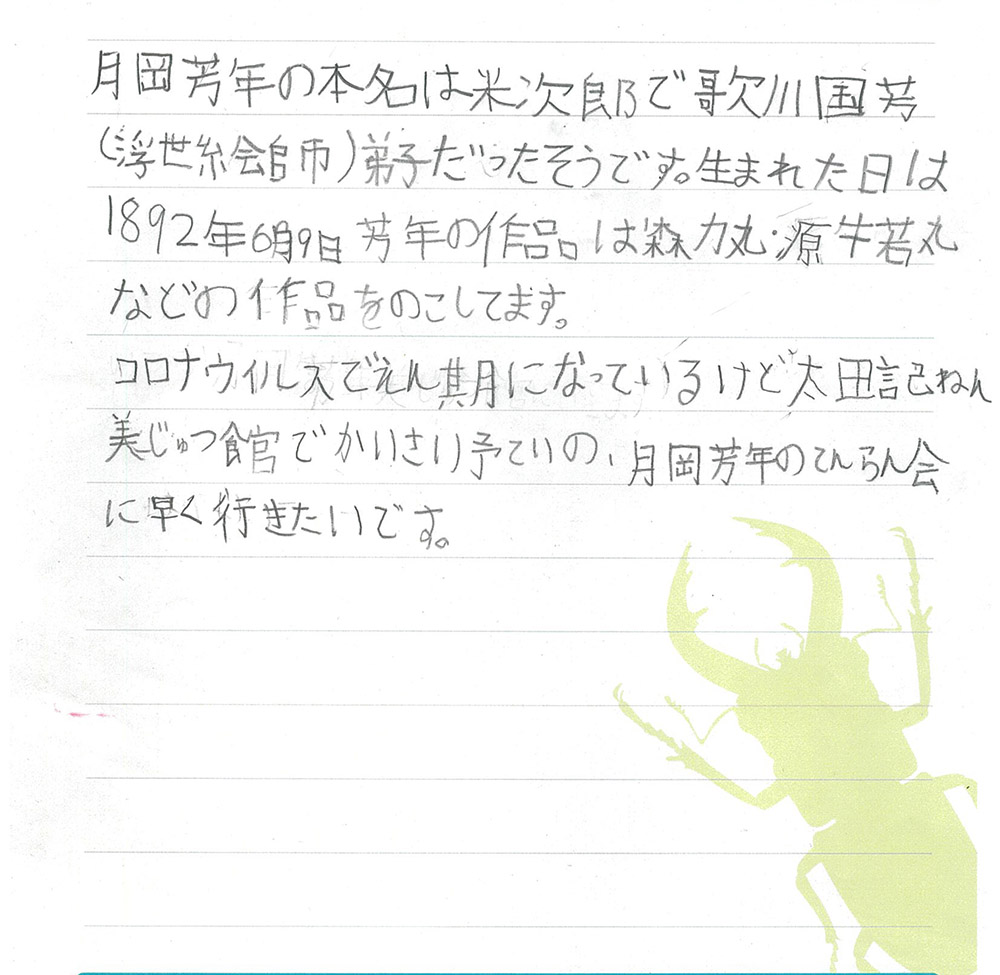 月岡芳年の本名は米次郎で歌川国芳
(浮世絵師)弟子だったそうです。生まれた日は
1892年6月9日 芳年の作品は森力丸・源牛若丸
などの作品をのこしてます。
コロナウイルスでえん期になっているけど太田記ねん
美じゅつ館でかいさい予ていの、月岡芳年のてんらん会
に早く行きたいです。